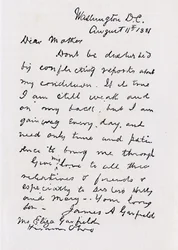 Washington D.C.
August 11th 1881
Dear Mother
Dont be disturbed
by conflicting reports about
my condition. It is true
I am still weak and
on my back, but I am
gaining every day, and
need only time and patience
to bring me through
Give my love to all the
relatives & friends &
especially to sisters Hitty
and Mary - Your loving
son -
James A Garfield
Mrs Eliza Garfield
Hiram Ohio